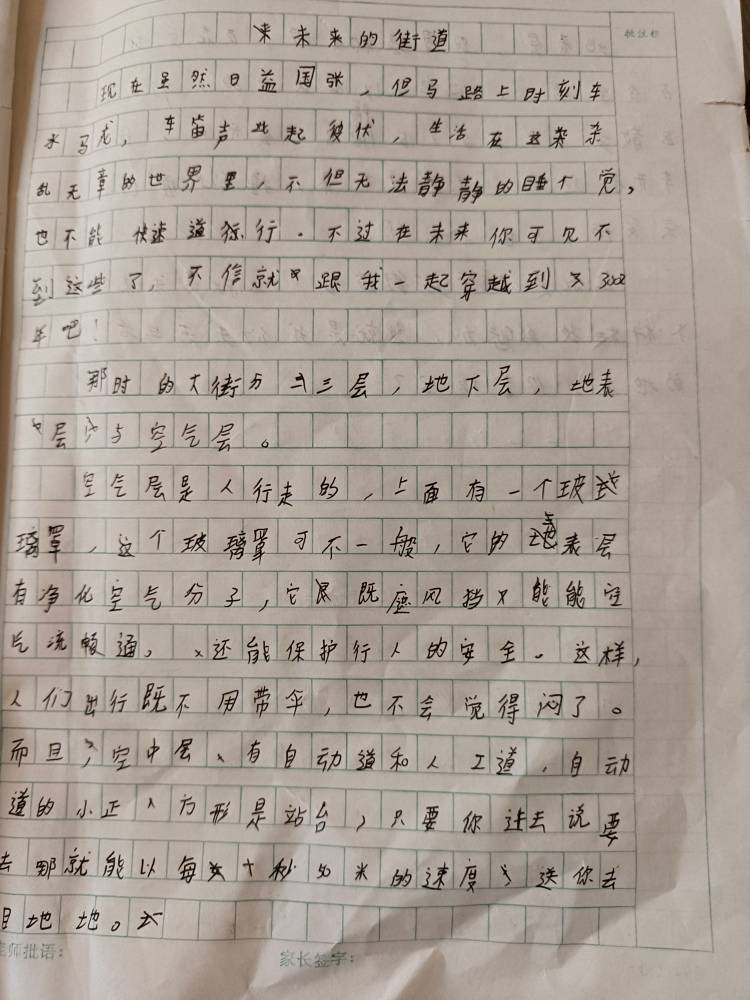 未来的街道
批改栏
现在虽然日益国张，但马路上时刻车
水马龙，车笛声此起彼伏，生活在这杂杂
乱无章的世界里，不但无法静静的睡个觉，
也不能快速道旅行。不过在未来你可见不
到这些了，不信就跟我一起穿越到3002
年吧！
那时的大街分三层，地下层，地表
层与空气层。
空气层是人行走的，上面有一个玻
璃罩，这个玻璃罩可不一般，它的表层
有净化空气分子，它既挡风挡又能能空
气流畅通，还能保护行人的安全。这样，
人们出行既不用带伞，也不会觉得闷了。
而且，空中层有自动道和人工道，自动
道的小正方形是站台，只要你过去说要
去哪就能以每秒50米的速度送你去
目地地。
老师批语：
家长签字：